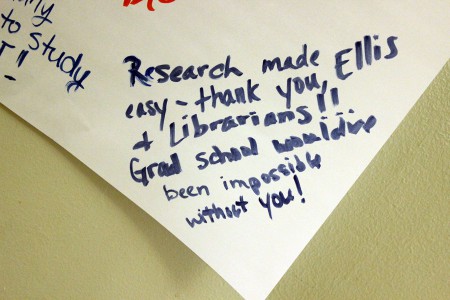 to study
Research made
easy - thank you, Ellis
+ Librarians!!
Grad school would've
been impossible
without you!